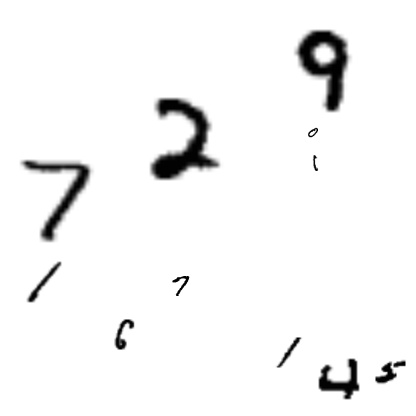 9
2
0
1
7
1
7
6
1
4 5